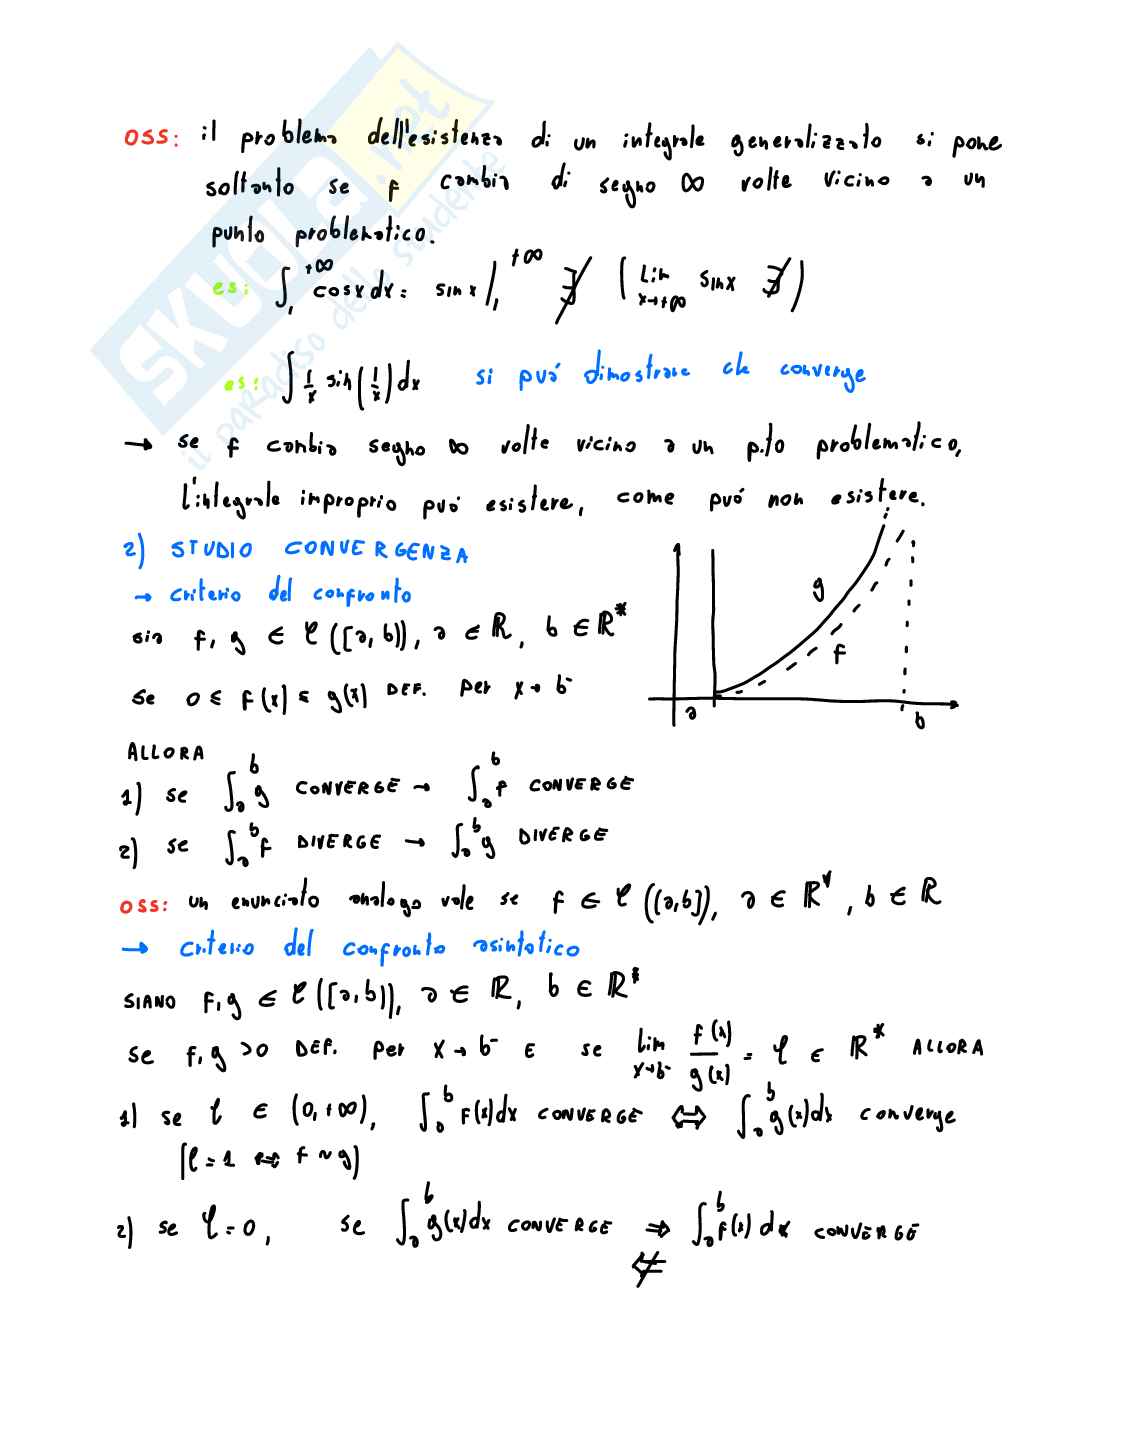 SKUOLA.net
il paradiso dello studente
OSS: il problema dell'esistenza di un integrale generalizzato si pone
soltanto se f cambia di segno ∞ volte vicino a un
punto problematico.
es: ∫₁^{+∞} cosx dx = sinx |₁^{+∞} ∄ (lim_{x→+∞} sinx ∄)
es: ∫ 1/x sin(1/x) dx si può dimostrare che converge
→ se f cambia segno ∞ volte vicino a un p.to problematico,
l'integrale improprio può esistere, come può non esistere.
2) STUDIO CONVERGENZA
→ criterio del confronto
sia f, g ∈ C([a, b)), a ∈ ℝ, b ∈ ℝ*
se 0 ≤ f(x) ≤ g(x) DEF. per x→b⁻
g
f
a
b
ALLORA
1) se ∫ₐᵇ g CONVERGE → ∫ₐᵇ f CONVERGE
2) se ∫ₐᵇ f DIVERGE → ∫ₐᵇ g DIVERGE
OSS: un enunciato analogo vale se f ∈ C((a,b]), a ∈ ℝ*, b ∈ ℝ
→ criterio del confronto asintotico
SIANO f,g ∈ C([a,b)), a ∈ ℝ, b ∈ ℝ*
se f,g >0 DEF. per x→b⁻ E se lim_{x→b⁻} f(x)/g(x) = l ∈ ℝ* ALLORA
1) se l ∈ (0,+∞), ∫ₐᵇ f(x)dx CONVERGE ⇔ ∫ₐᵇ g(x)dx converge
(l=1 ⇔ f ~ g)
2) se l=0, se ∫ₐᵇ g(x)dx CONVERGE ⇒ ∫ₐᵇ f(x)dx CONVERGE
⇍